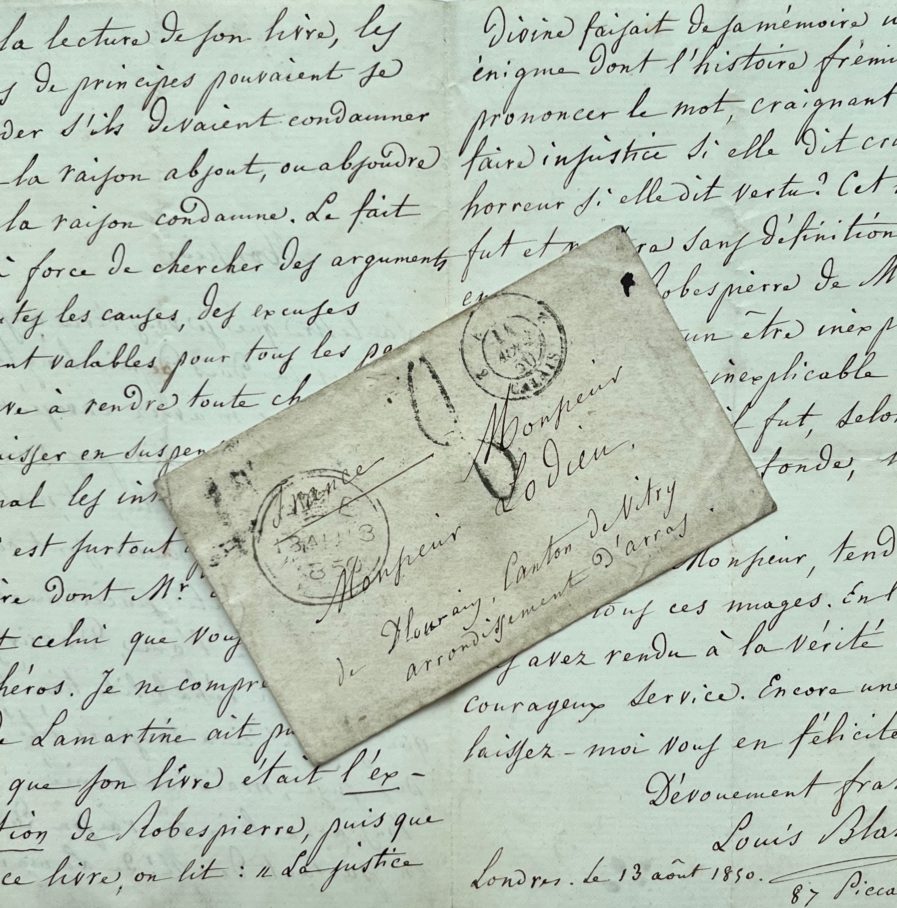 la lecture de son livre, les
s de principes pouvaient se
der s'ils devaient condamner
la raison absout, ou absoudre
la raison condamne. Le fait
à force de chercher des arguments
utes les causes, des excuses
nt valables pour tous les pa
ve à rendre toute ch
aisser en suspen
nal les in
est surtout
re dont Mr.
t celui que vous
héros. Je ne compr
de Lamartine ait pu
que son livre était l'ex-
tion de Robespierre, puis que
ce livre, on lit : " La justice
Divine faisait de sa mémoire u
énigme dont l'histoire frémi
prononcer le mot, craignant
faire injustice si elle dit cr
horreur si elle dit vertu? Cet
fut et ra sans définition
obespierre de M
un être inexp
inexplicable
l fut, selon
fonde,
Monsieur, tend
ous ces nuages. En l
avez rendu à la vérité
courageux service. Encore une
laissez-moi vous en félicite
Dévouement fra
Louis Bla
Londres. Le 13 août 1850.
87 Picca
France
Monsieur
Lodieu,
Monsieur
de Plouvain, Canton de Vitry
arrondissement d'arras.
CALAIS